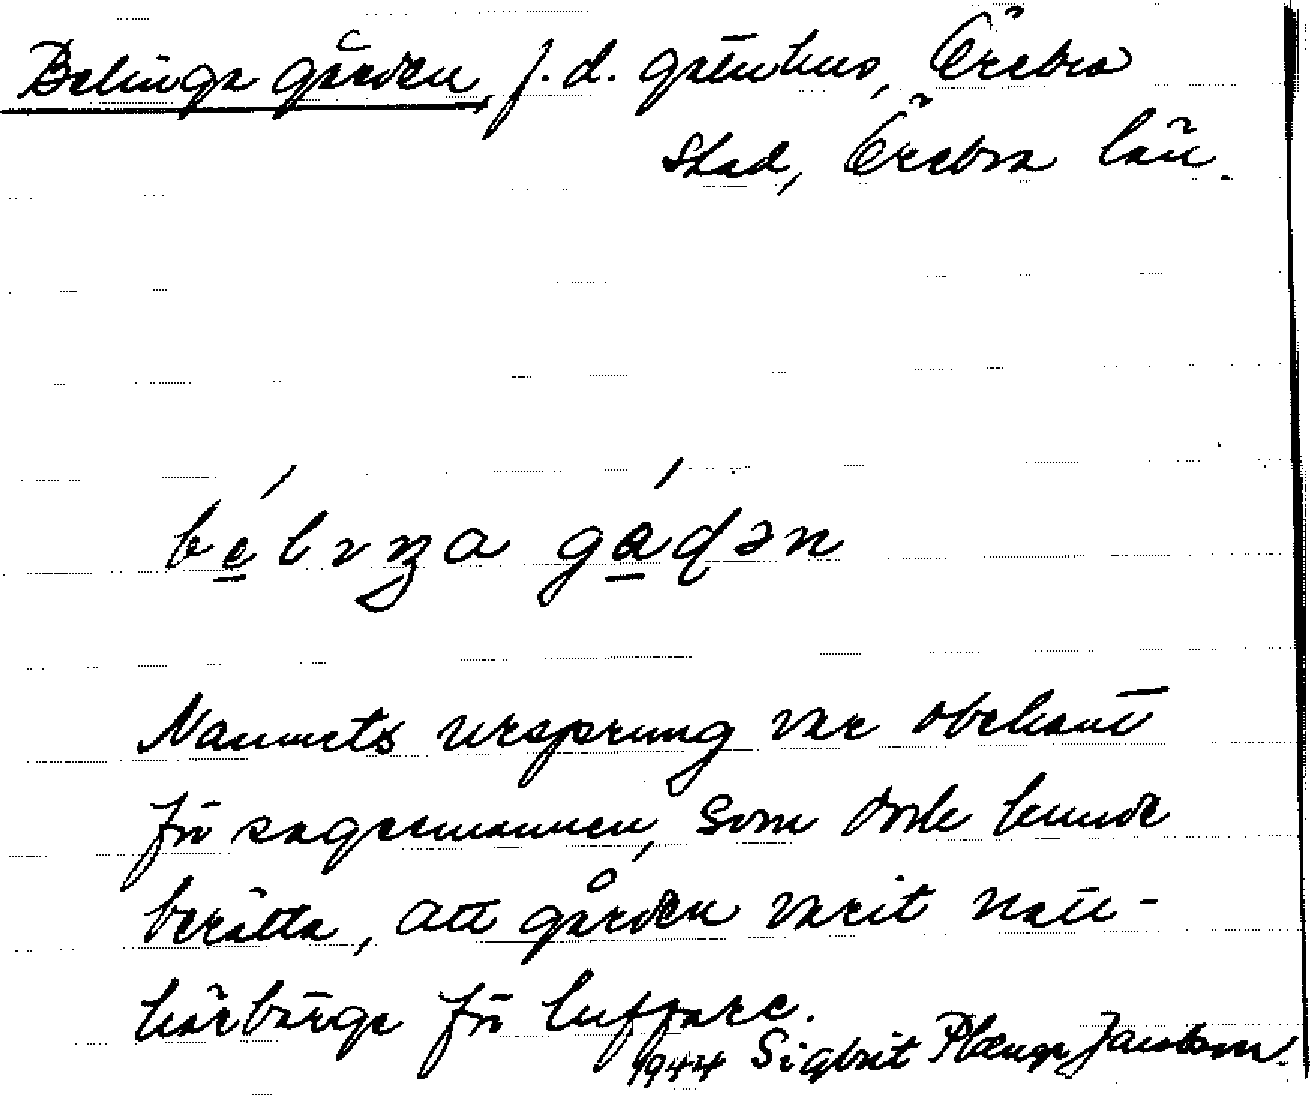 Belinga gården, f.d. gästhus, Örebro
stad, Örebro län.
bélıŋa gáɖən
Namnets ursprung var obekant
för sagesmannen, som dock kunde
berätta, att gården varit natt-
härbärge för luffare.
1944 Sigbrit Plænge Jacobson.